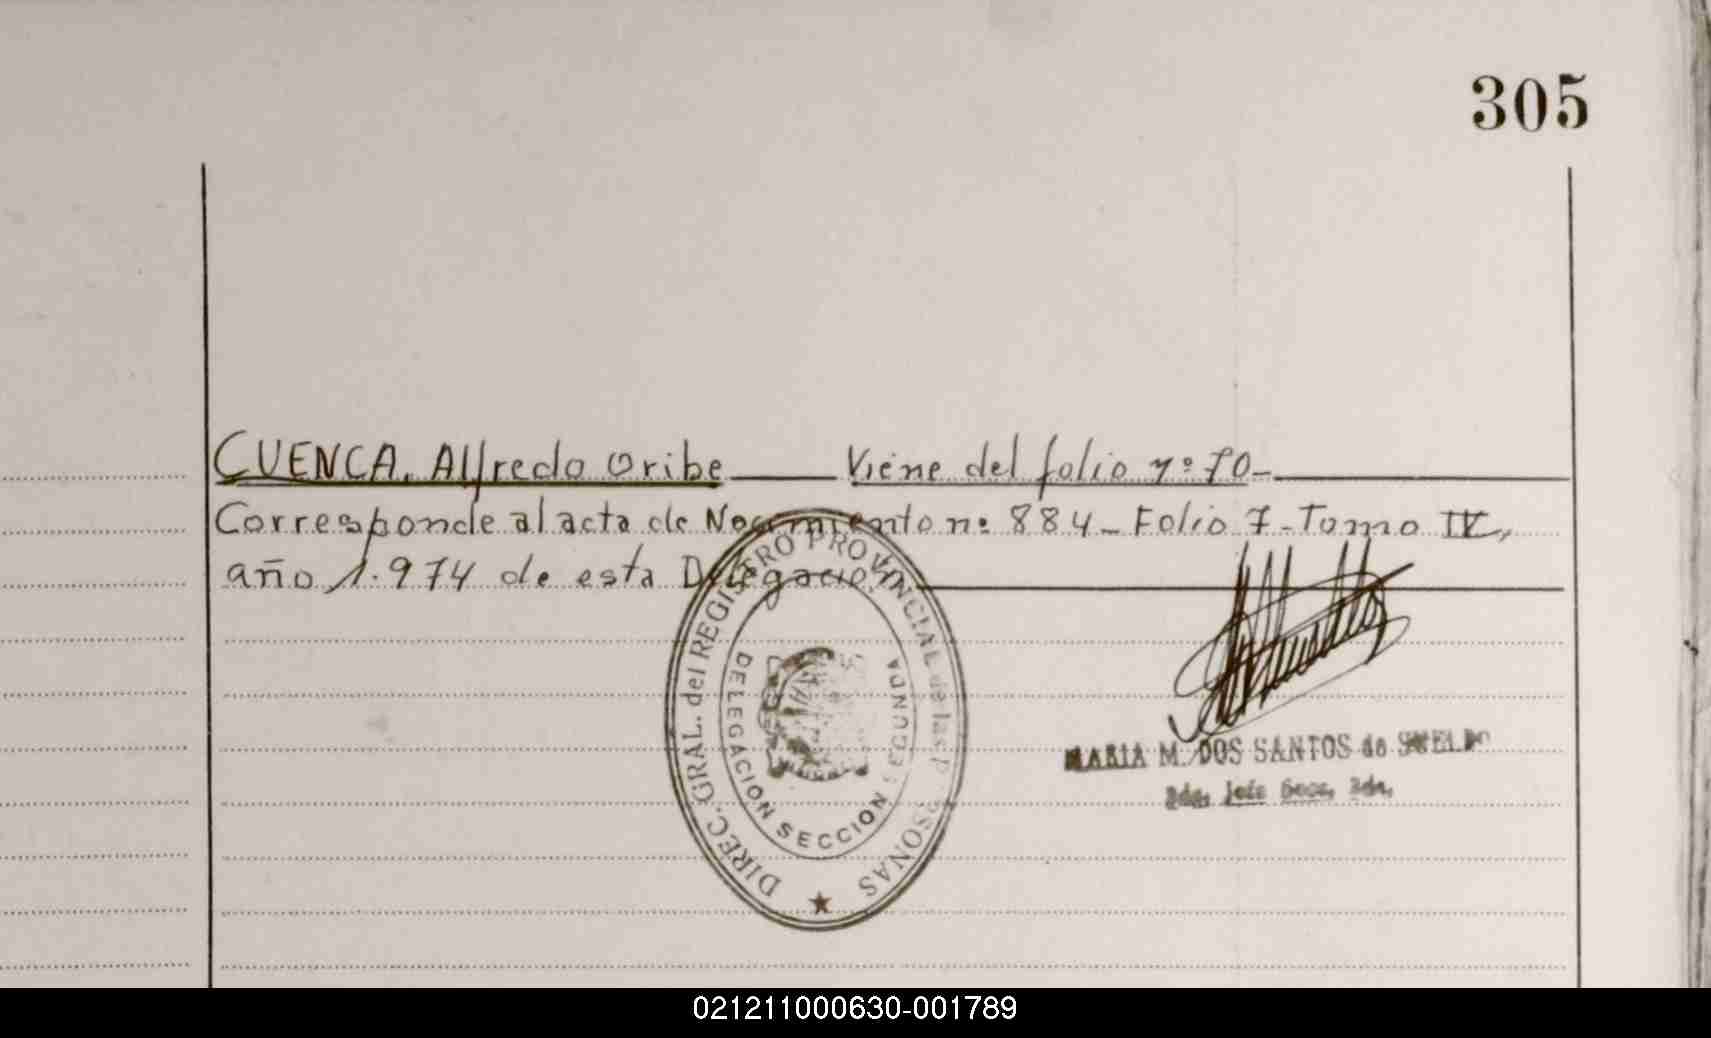 305
CUENCA, Alfredo Oribe — Viene del folio nº 70 —
Corresponde al acta de Nacimiento nº 884 - Folio 7 - Tomo IV,
año 1.974 de esta Delegación
DIREC. GRAL. del REGISTRO PROVINCIAL de las PERSONAS
DELEGACION SECCION SEGUNDA
MARIA M. DOS SANTOS de SUELDO
021211000630-001789